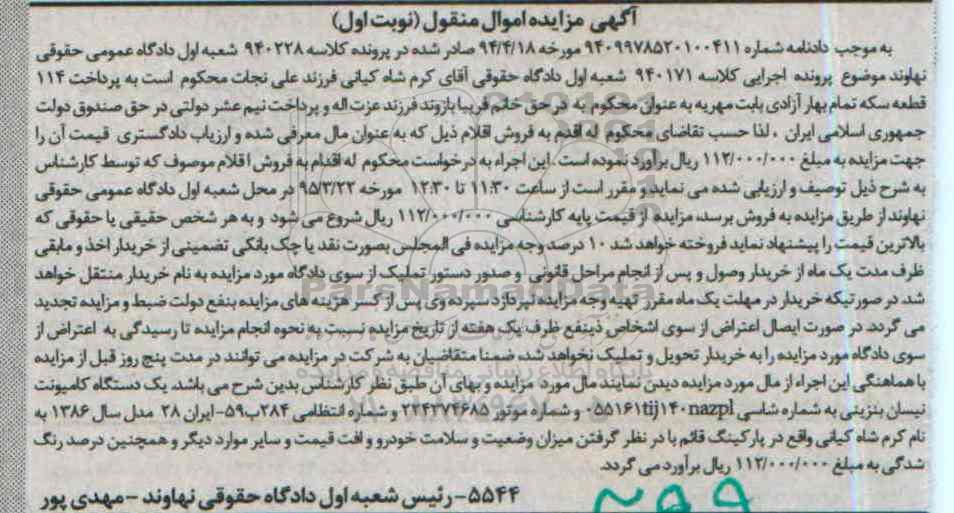 آگهی مزایده اموال منقول (نوبت اول)
به موجب دادنامه شماره ۹۴۰۹۹۷۸۵۲۰۱۰۰۴۱۱ مورخه ۹۴/۴/۱۸ صادر شده در پرونده کلاسه ۹۴۰۲۲۸ شعبه اول دادگاه عمومی حقوقی
نهاوند موضوع پرونده اجرایی کلاسه ۹۴۰۱۷۱ شعبه اول دادگاه حقوقی آقای کرم شاه کیانی فرزند علی نجات محکوم است به پرداخت ۱۱۴
قطعه سکه تمام بهار آزادی بابت مهریه به عنوان محکوم به در حق خانم فریبا بازوند فرزند عزت اله و پرداخت نیم عشر دولتی در حق صندوق دولت
جمهوری اسلامی ایران ، لذا حسب تقاضای محکوم له اقدم به فروش اقلام ذیل که به عنوان مال معرفی شده و ارزیاب دادگستری قیمت آن را
جهت مزایده به مبلغ ۱۱۲/۰۰۰/۰۰۰ ریال برآورد نموده است . این اجراء به درخواست محکوم له اقدام به فروش اقلام موصوف که توسط کارشناس
به شرح ذیل توصیف و ارزیابی شده می نماید و مقرر است از ساعت ۱۱:۳۰ تا ۱۲:۳۰ مورخه ۹۵/۳/۲۲ در محل شعبه اول دادگاه عمومی حقوقی
نهاوند از طریق مزایده به فروش برسد، مزایده از قیمت پایه کارشناسی ۱۱۲/۰۰۰/۰۰۰ ریال شروع می شود و به هر شخص حقیقی یا حقوقی که
بالاترین قیمت را پیشنهاد نماید فروخته خواهد شد ۱۰ درصد وجه مزایده فی المجلس بصورت نقد یا چک بانکی تضمینی از خریدار اخذ و مابقی
ظرف مدت یک ماه از خریدار وصول و پس از انجام مراحل قانونی و صدور دستور تملیک از سوی دادگاه مورد مزایده به نام خریدار منتقل خواهد
شد. در صورتیکه خریدار در مهلت یک ماه مقرر تهیه وجه مزایده نپردازد سپرده وی پس از کسر هزینه های مزایده بنفع دولت ضبط و مزایده تجدید
می گردد. در صورت ایصال اعتراض از سوی اشخاص ذینفع ظرف یک هفته از تاریخ مزایده نسبت به نحوه انجام مزایده تا رسیدگی به اعتراض از
سوی دادگاه مورد مزایده را به خریدار تحویل و تملیک نخواهد شد، ضمنا متقاضیان به شرکت در مزایده می توانند در مدت پنج روز قبل از مزایده
با هماهنگی این اجراء از مال مورد مزایده دیدن نمایند مال مورد مزایده و بهای آن طبق نظر کارشناس بدین شرح می باشد. یک دستگاه کامیونت
نیسان بنزینی به شماره شاسی ۰۵۵۱۶۱tij۱۴۰nazpl و شماره موتور ۲۲۴۲۷۴۶۸۵ و شماره انتظامی ۲۸۴ب۵۹-ایران ۲۸ مدل سال ۱۳۸۶ به
نام کرم شاه کیانی واقع در پارکینگ قائم با در نظر گرفتن میزان وضعیت و سلامت خودرو و افت قیمت و سایر موارد دیگر و همچنین درصد رنگ
شدگی به مبلغ ۱۱۲/۰۰۰/۰۰۰ ریال برآورد می گردد.
۵۵۴۴-رئیس شعبه اول دادگاه حقوقی نهاوند -مهدی پور
ParsNamadData
پایگاه اطلاع رسانی مناقصه و مزایده